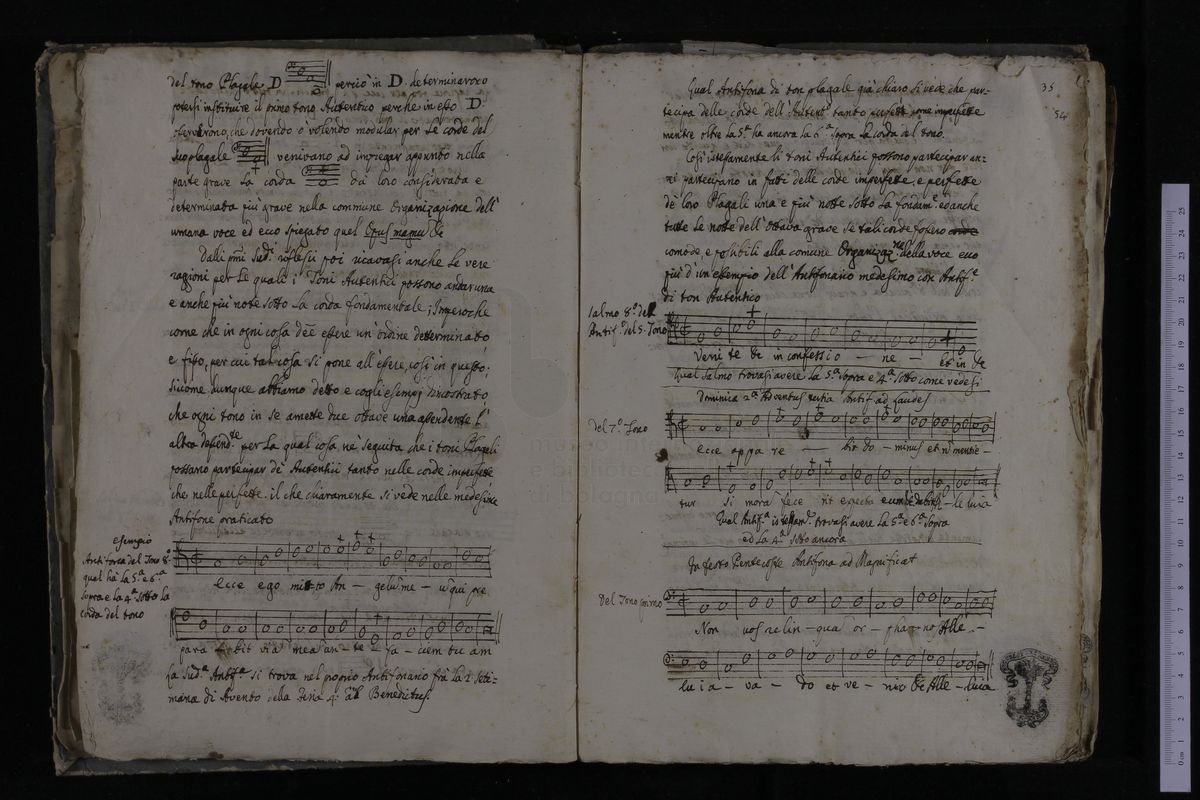 del tono Plagale D perciò in D determinarono
potersi instituire il primo tono Autentico perche in esso D
osservarono, che dovendo ò volendo modular per le corde del
suo plagale venivano ad impiegar appunto nella
parte grave la corda da loro considerata e
determinata più grave nella commune Organizazione dell'
umana voce ed ecco spiegato quel Opus magnũ &c
Dalli pmi. Sud.i riflessi poi ricavasi anche le vere
ragioni per le quali i Toni Autentici possono andar una
e anche più note sotto la corda fondamentale; Imperoche
come che in ogni cosa deê essere un'ordine determinato
e fisso, per cui tal cosa si pone all'essere, così in questo;
sicome dunque abbiamo detto e cogli esempj dimostrato,
che ogni tono in se amette due ottave una ascendente l'
altra descend.te per la qual cosa nè seguita che i toni Plagali
possano partecipar de' Autentici tanto nelle corde imperfette
che nelle perfette. il che chiaramente si vede nelle medesime
Antifone praticato
esempio
Antifona del Tono 8.o
qual hà la 5.a e 6.a
sopra e la 4.a sotto la
corda del tono
ecce ego mitto An - gelũ me - ũ qui pre
para - bit viã meã an - te - fa - ciem tu am
La Sud.a Antif.a si trova nel proprio Antifonario frà la 2. Seti=
mana di Avento della Feria 4.a ad Benedictus.
35
54
Qual Antifona di ton plagale già chiaro si vede che par-
tecipa delle corde dell'Autent.o tanto perfette come imperfette
mentre oltre la 5.a ha ancora la 6.a sopra la corda del tono.
Così istesamente li toni Autentici possono partecipar an-
zi partecipano in fatti delle corde imperfette, e perfette
de loro Plagali una e più note sotto la fondam.e ed anche
tutte le note dell'Ottava grave se tali corde fossero
comode, e possibili alla comune Organizaz.ne della voce
più d'un esempio dell'Antifonario medesimo con Antif.e
di ton Autentico
Salmo 8.o del
Antif.a del 5. Tono
Veni te &c in confessio - ne - Et in &c
Qual Salmo trovasi avere la 5.a sopra e 4.a sotto come vedesi
Dominica 2.a Adventus Antif ad laudes
Del 7.o Tono
ecce appa re - bit do - minus et nõ mentie -
tur si moras fece rit expecta eum - le luia
Qual Antif.a istessam.e trovasi avere la 5.a e 6.a sopra
ed la 4.a sotto ancora
In festo Pentecoste Antifona ad Magnificat
Del Tono primo
Non vos relin - quas or - pha - nos Alle -
lu ia - va - do et ve - nio &c Alle - luia